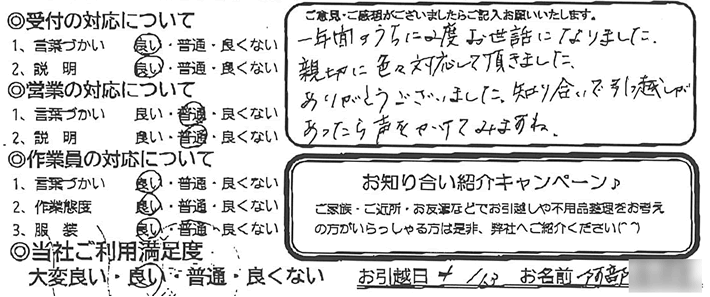 ◎受付の対応について
1、言葉づかい 良い・普通・良くない
2、説 明 良い・普通・良くない
◎営業の対応について
1、言葉づかい 良い・普通・良くない
2、説 明 良い・普通・良くない
◎作業員の対応について
1、言葉づかい 良い・普通・良くない
2、作業態度 良い・普通・良くない
3、服 装 良い・普通・良くない
◎当社ご利用満足度
大変良い・良い・普通・良くない
ご意見・ご感想がございましたらご記入お願いいたします。
一年間のうちに2度お世話になりました。
親切に色々対応して頂きました。
ありがとうございました。知り合いで引っ越しが
あったら声をかけてみますね。
お知り合い紹介キャンペーン♪
ご家族・ご近所・お友達などでお引越しや不用品整理をお考え
の方がいらっしゃる方は是非、弊社へご紹介ください(^^)
お引越日 4 / お名前 阿部